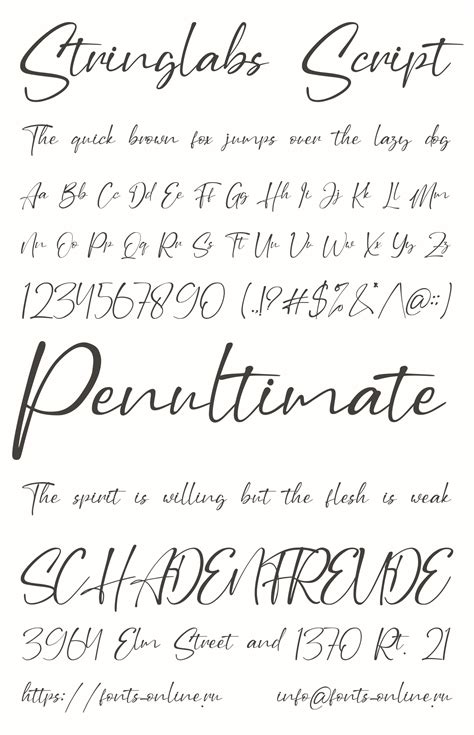 Stringlabs Script
The quick brown fox jumps over the lazy dog
Aa Bb Cc Dd Ee Ff Gg Hh Ii Jj Kk Ll Mm
Nn Oo Pp Qq Rr Ss Tt Uu Vv Ww Xx Yy Zz
1234567890 (.,!?#$%&*/\@:;)
Penultimate
The spirit is willing but the flesh is weak
SCHADENFREUDE
3964 Elm Street and 1370 Rt. 21
https://fonts-online.ru info@fonts-online.ru